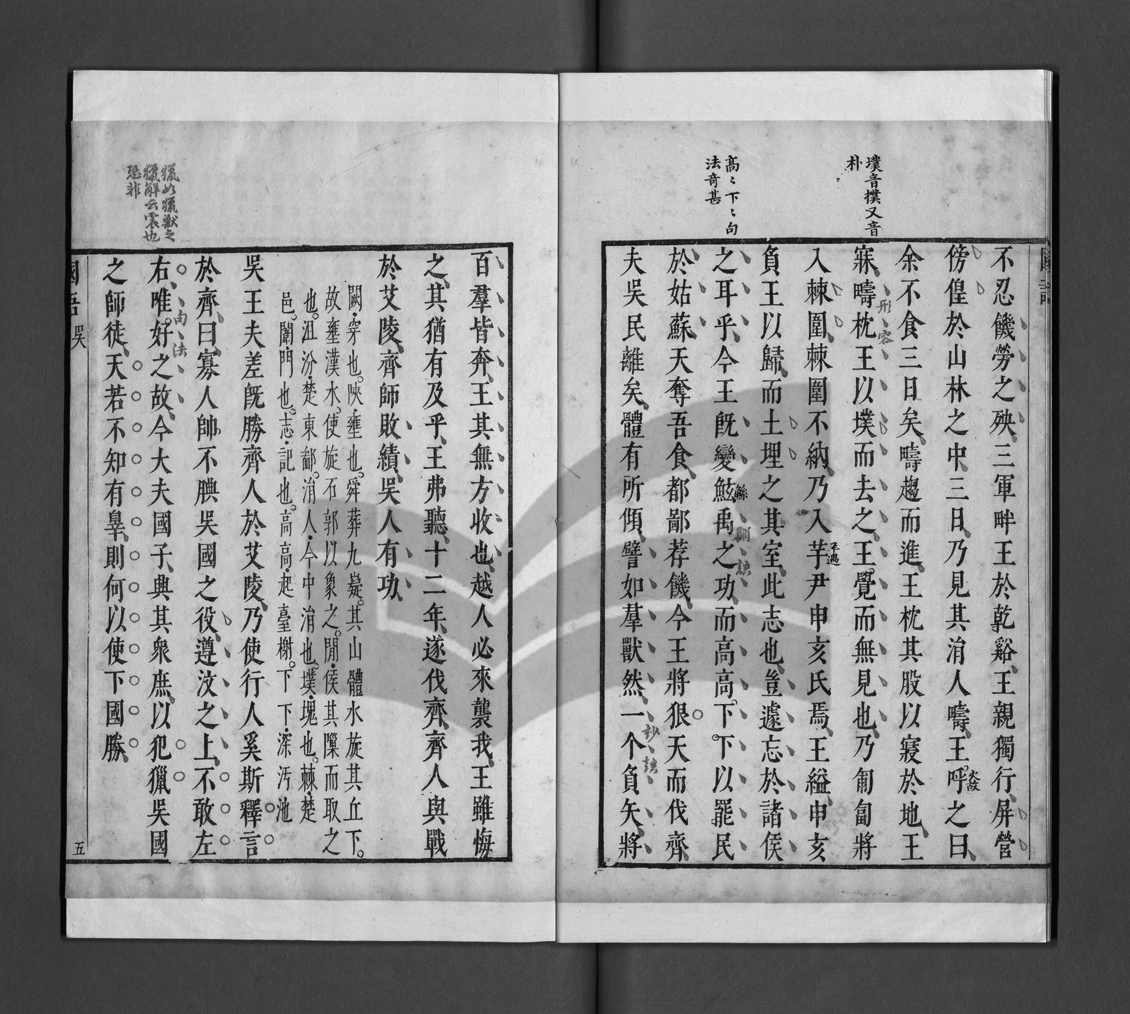 國語
墣音撲又音
朴
高〻下〻句
法奇甚
不忍饑勞之殃三軍畔王於乾谿王親獨行屏營
傍偟於山林之中三日乃見其涓人疇王呼之曰
余不食三日矣疇趨而進王枕其股以寢於地王
寐疇枕王以墣而去之王覺而無見也乃匍匐將
形容
入棘圍棘圍不納乃入芋尹申亥氏焉王縊申亥
負王以歸而土埋之其室此志也豈遽忘於諸侯
之耳乎今王旣變鮌禹之功而高高下下以罷民
於姑蘇天奪吾食都鄙荐饑今王將狠天而伐齊
夫吳民離矣體有所傾譬如羣獸然一个負矢將
妙語
百羣皆奔王其無方收也越人必來襲我王雖悔
之其猶有及乎王弗聽十二年遂伐齊齊人與戰
於艾陵齊師敗績吳人有功
闕穿也陂壅也舜葬九嶷其山體水旋其丘下
故壅漢水使旋石郭以象之閒侯其隟而取之
也沮汾楚東鄙涓人今中涓也墣塊也棘楚
邑闈門也志記也高高起臺榭下下深汙池
吳王夫差旣勝齊人於艾陵乃使行人奚斯釋言
於齊曰寡人帥不腆吳國之役遵汶之上不敢左
右唯好之故今大夫國子興其衆庶以犯獵吳國
句法
之師徒天若不知有辠則何以使下國勝
獵如獵獸之
獵解云震也
恐非
國語 吳
五